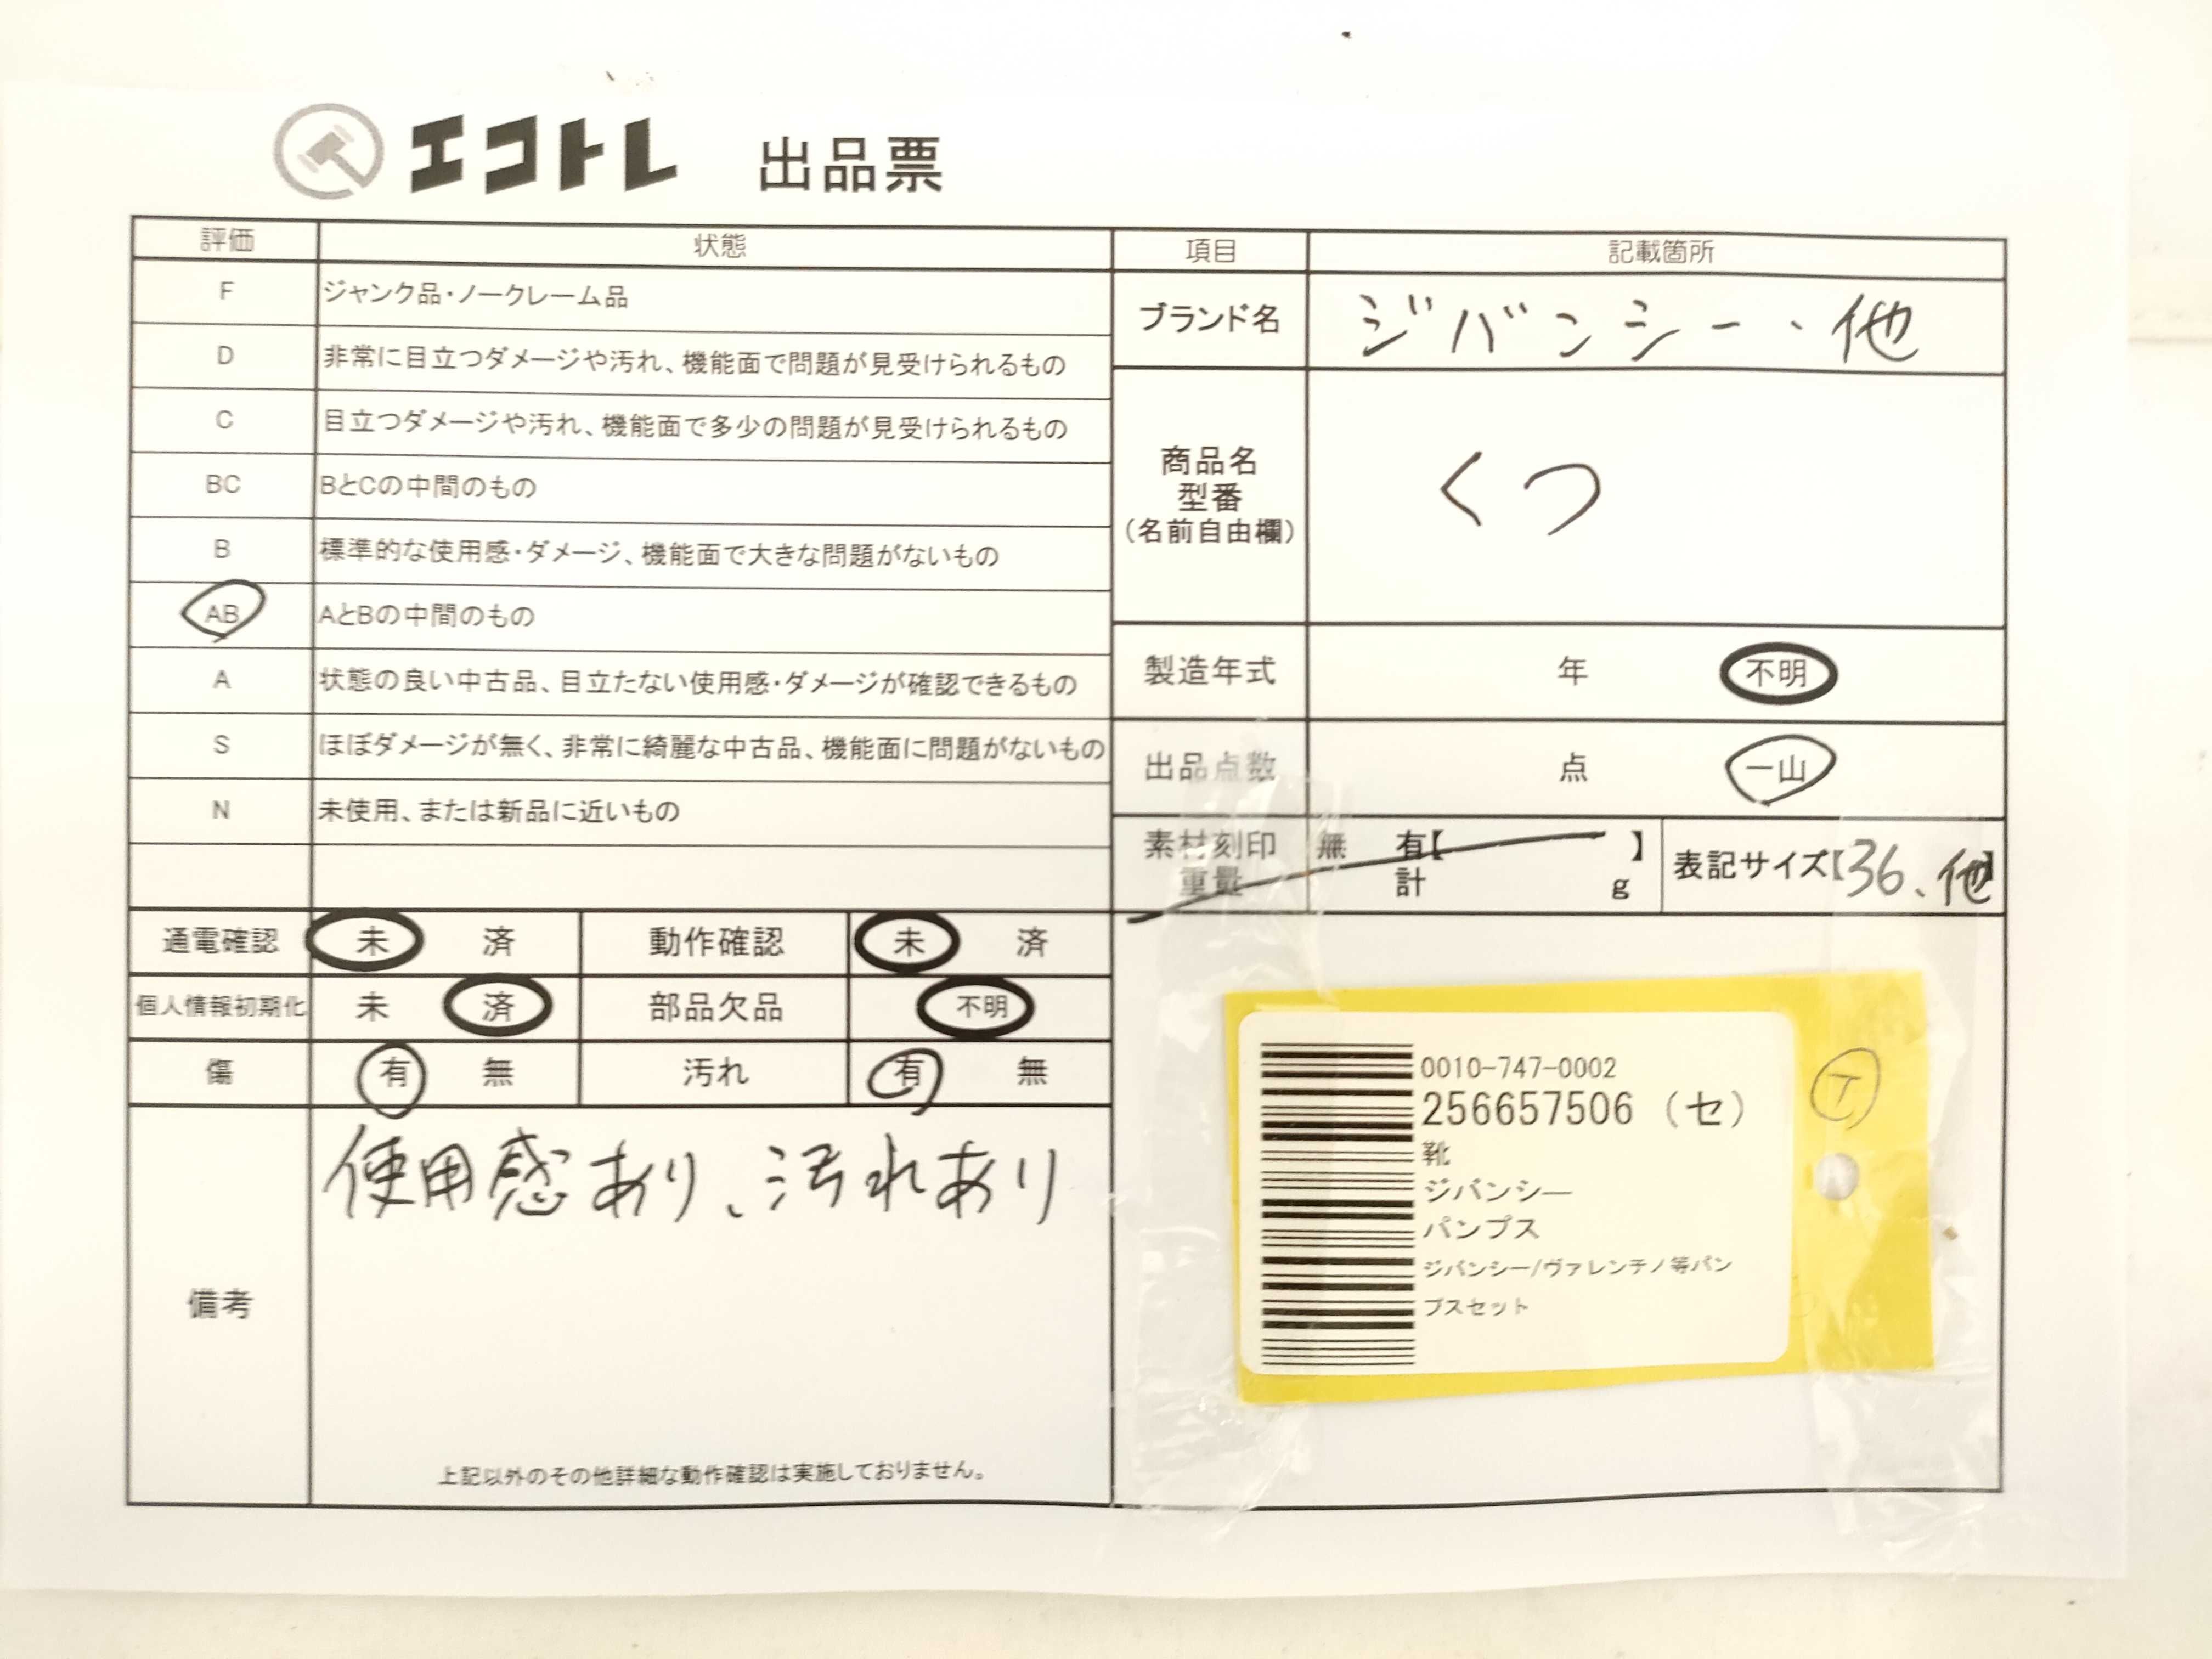 エコトレ 出品票
評価 状態 項目 記載箇所
F ジャンク品・ノークレーム品
D 非常に目立つダメージや汚れ、機能面で問題が見受けられるもの
C 目立つダメージや汚れ、機能面で多少の問題が見受けられるもの
BC BとCの中間のもの
B 標準的な使用感・ダメージ、機能面で大きな問題がないもの
AB AとBの中間のもの
A 状態の良い中古品、目立たない使用感・ダメージが確認できるもの
S ほぼダメージが無く、非常に綺麗な中古品、機能面に問題がないもの
N 未使用、または新品に近いもの
ブランド名 ジバンシー、他
商品名
型番
(名前自由欄)
くつ
製造年式 年 不明
出品点数 点 一山
素材刻印 無 有【 】
重量 計 g
表記サイズ【36、他】
通電確認 未 済 動作確認 未 済
個人情報初期化 未 済 部品欠品 不明
傷 有 無 汚れ 有 無
備考
使用感あり、汚れあり
上記以外のその他詳細な動作確認は実施しておりません。
0010-747-0002
256657506 (セ)
靴
ジバンシー
パンプス
ジバンシー/ヴァレンチノ等パン
プスセット
T